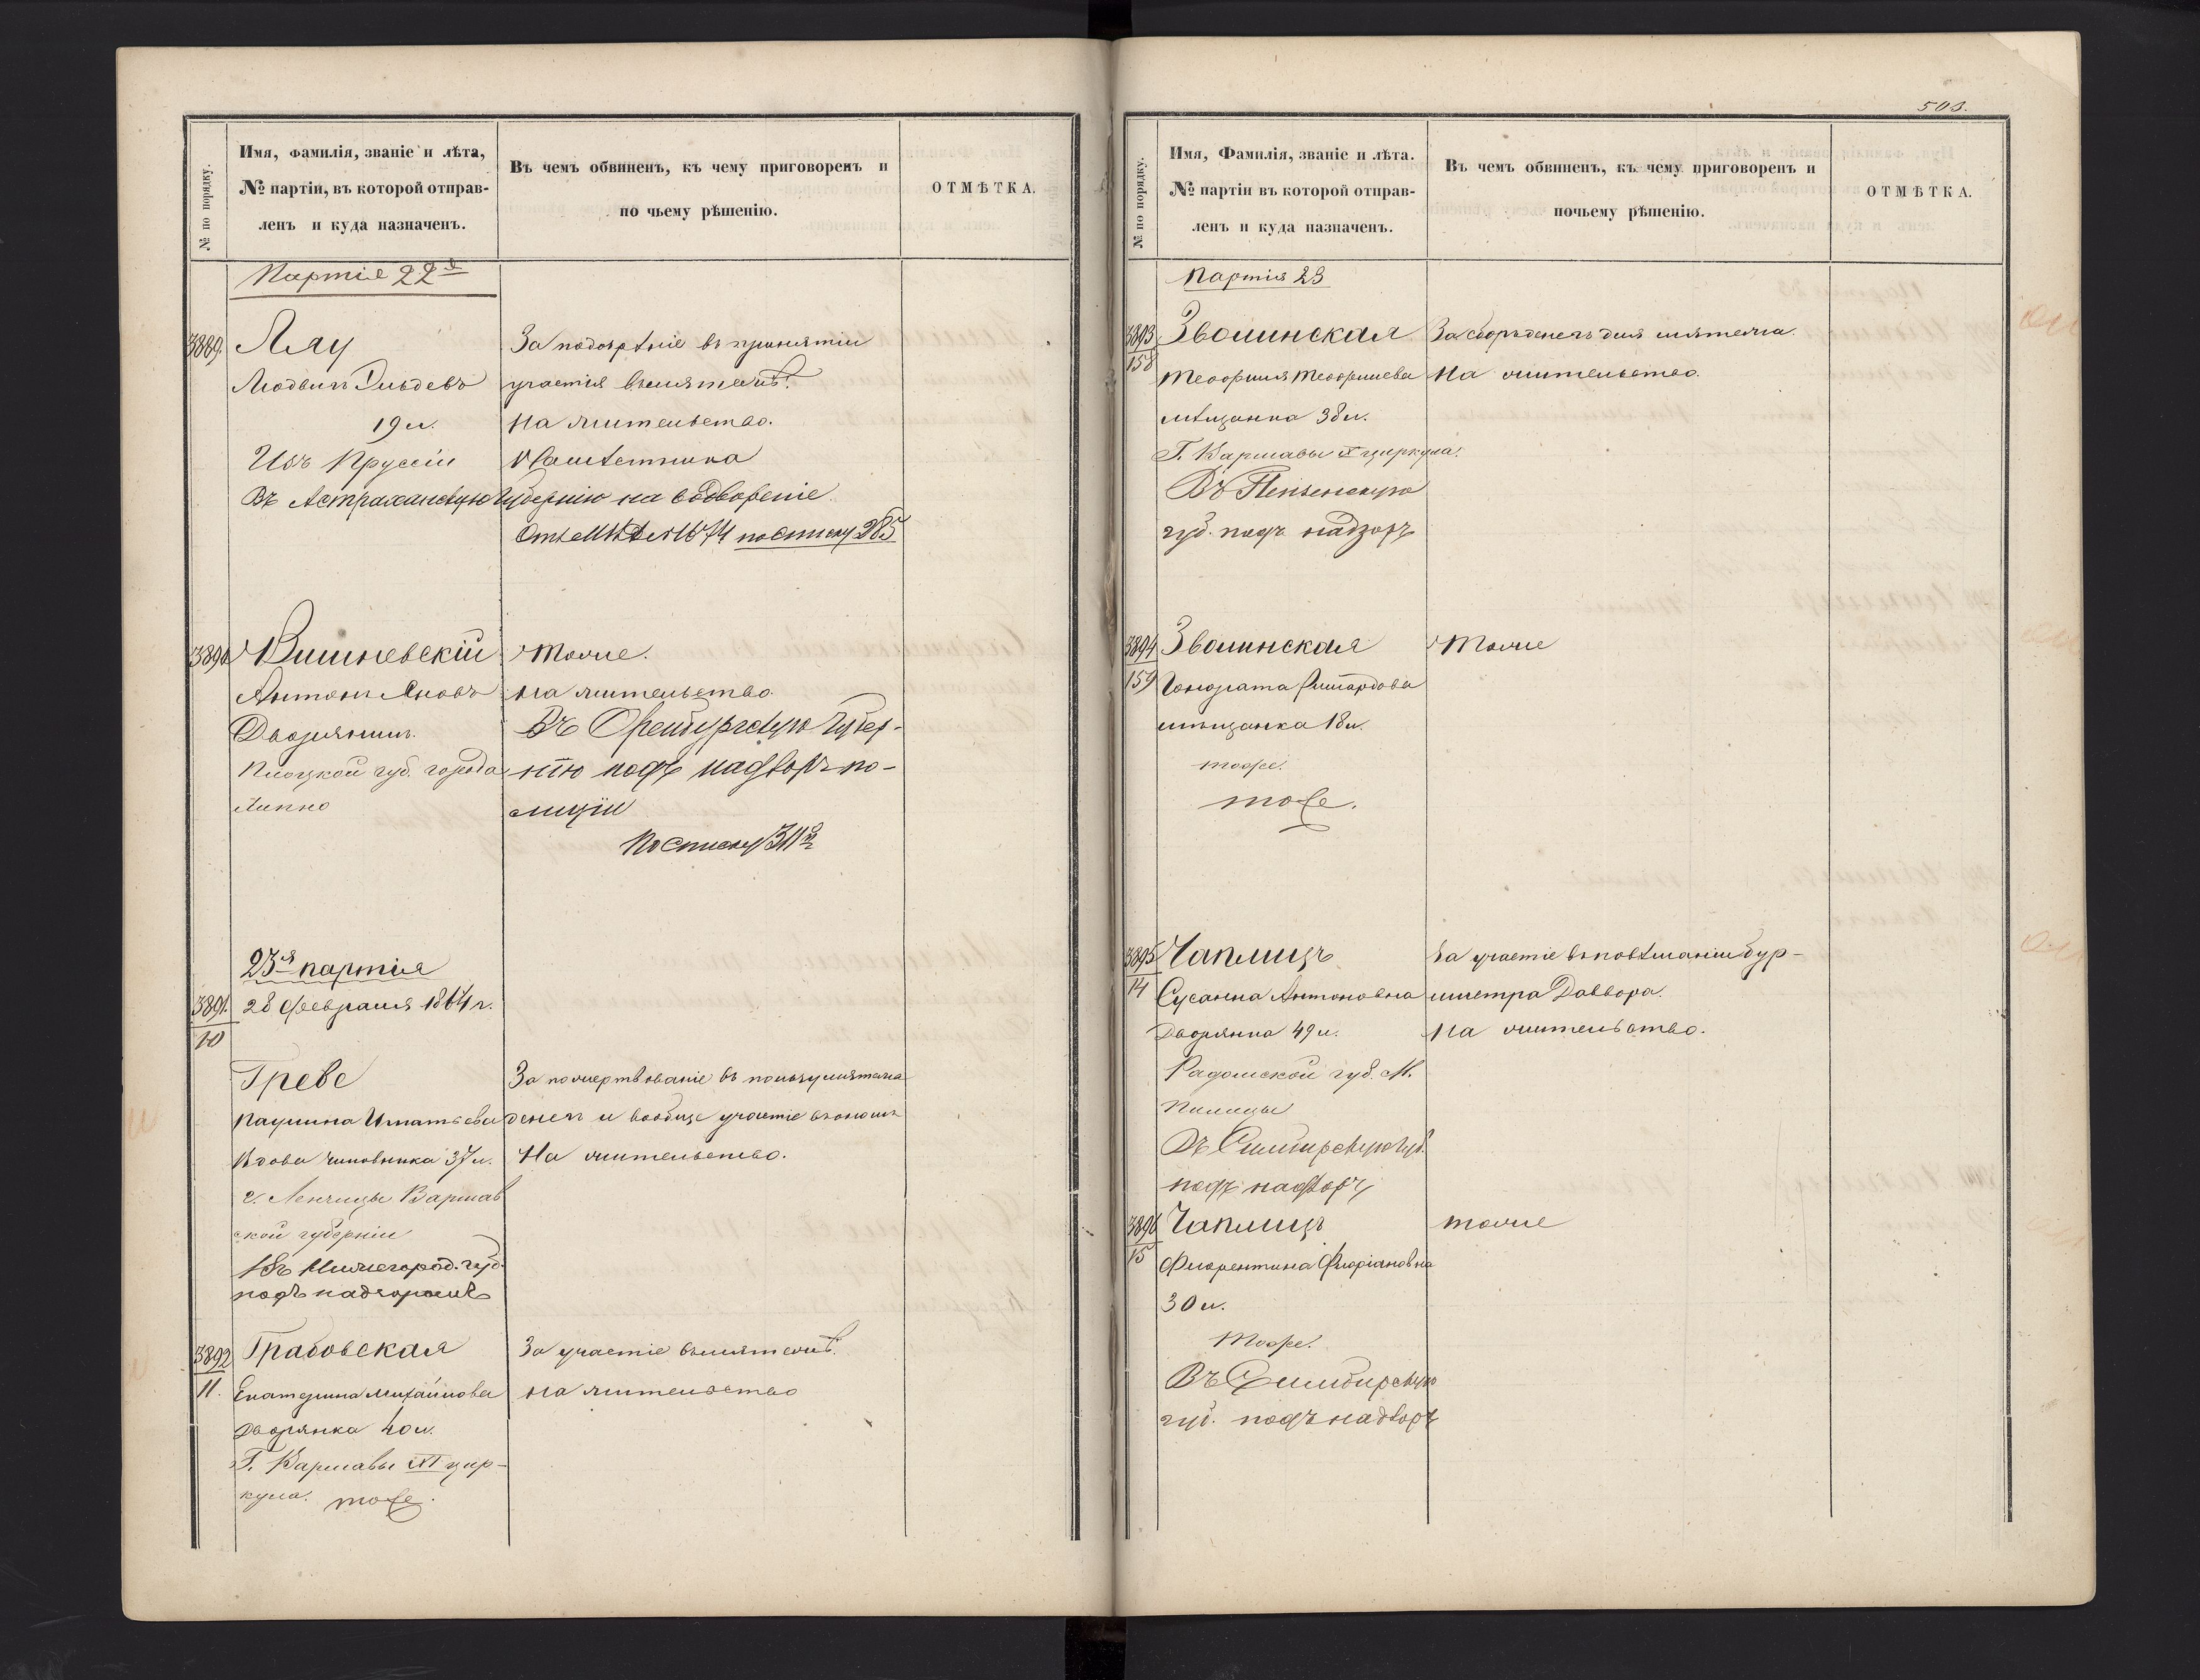 № по порядку.
Имя, Фамилія, званіе и лѣта,
№ партіи, въ которой отправ-
ленъ и куда назначенъ.
Въ чемъ обвиненъ, къ чему приговоренъ и
по чьему рѣшенію.
ОТМѢТКА.
Партіе 22я
3889.
Ляу
Людвигъ
19 л.
Изъ Пруссіи
Въ Астраханскую Губернію на водвореніе
За подозрѣніе въ принятіи
участія въ мятежѣ.
На жительство.
по списку 285
3890
Вишневскій
Антонъ Яновъ
Дворянинъ.
Плоцкой губ. города
Липно
Тоже.
на жительство.
Въ Оренбургскую Губер-
нію подъ надзоръ по-
лиціи
По списку 311й
23я партія
28 Февраля 1864 г.
3891.
10
Греве
Паулина Игнатьева
Вдова чиновника 37 л.
г. Ленчицы Варшав
ской губерніи
Въ Нижегород. губ.
подъ надзоромъ
За пожертвованіе въ пользу мятежа
денегъ и вообще участіе въ ономъ
На жительство.
3892
11.
Грабовская
Екатерина Михайлова
Дворянка 40 л.
Г. Варшавы XI цир-
кула. тоже.
За участіе въ мятежѣ.
на жительство
503.
№ по порядку.
Имя, Фамилія, званіе и лѣта.
№ партіи въ которой отправ-
ленъ и куда назначенъ.
Въ чемъ обвиненъ, къ чему приговоренъ и
почьему рѣшенію.
ОТМѢТКА.
Партія 23
3893
158
Зволинская
Теофиля Теофилева
мѣщанка 38 л.
Г. Варшавы X циркула.
Въ Пензенскую
губ. подъ надзоръ
За сборъ денегъ для мятежа.
На жительство.
3894
159
Зволинская
Гонората
мѣщанка 18 л.
тоже.
тоже.
Тоже
3895
14
Чаплицъ
Сусанна Антоновна
Дворянка 49 л.
Радомской губ. М.
Пилицы
Въ Симбирскую губ.
подъ надзоръ
За участіе въ повѣшаніи бур-
мистра Даввора.
На жительство.
3896
15
Чаплицъ
Флорентина Флоріановна
30 л.
Тоже.
Въ Симбирскую
губ. подъ надзоръ
тоже